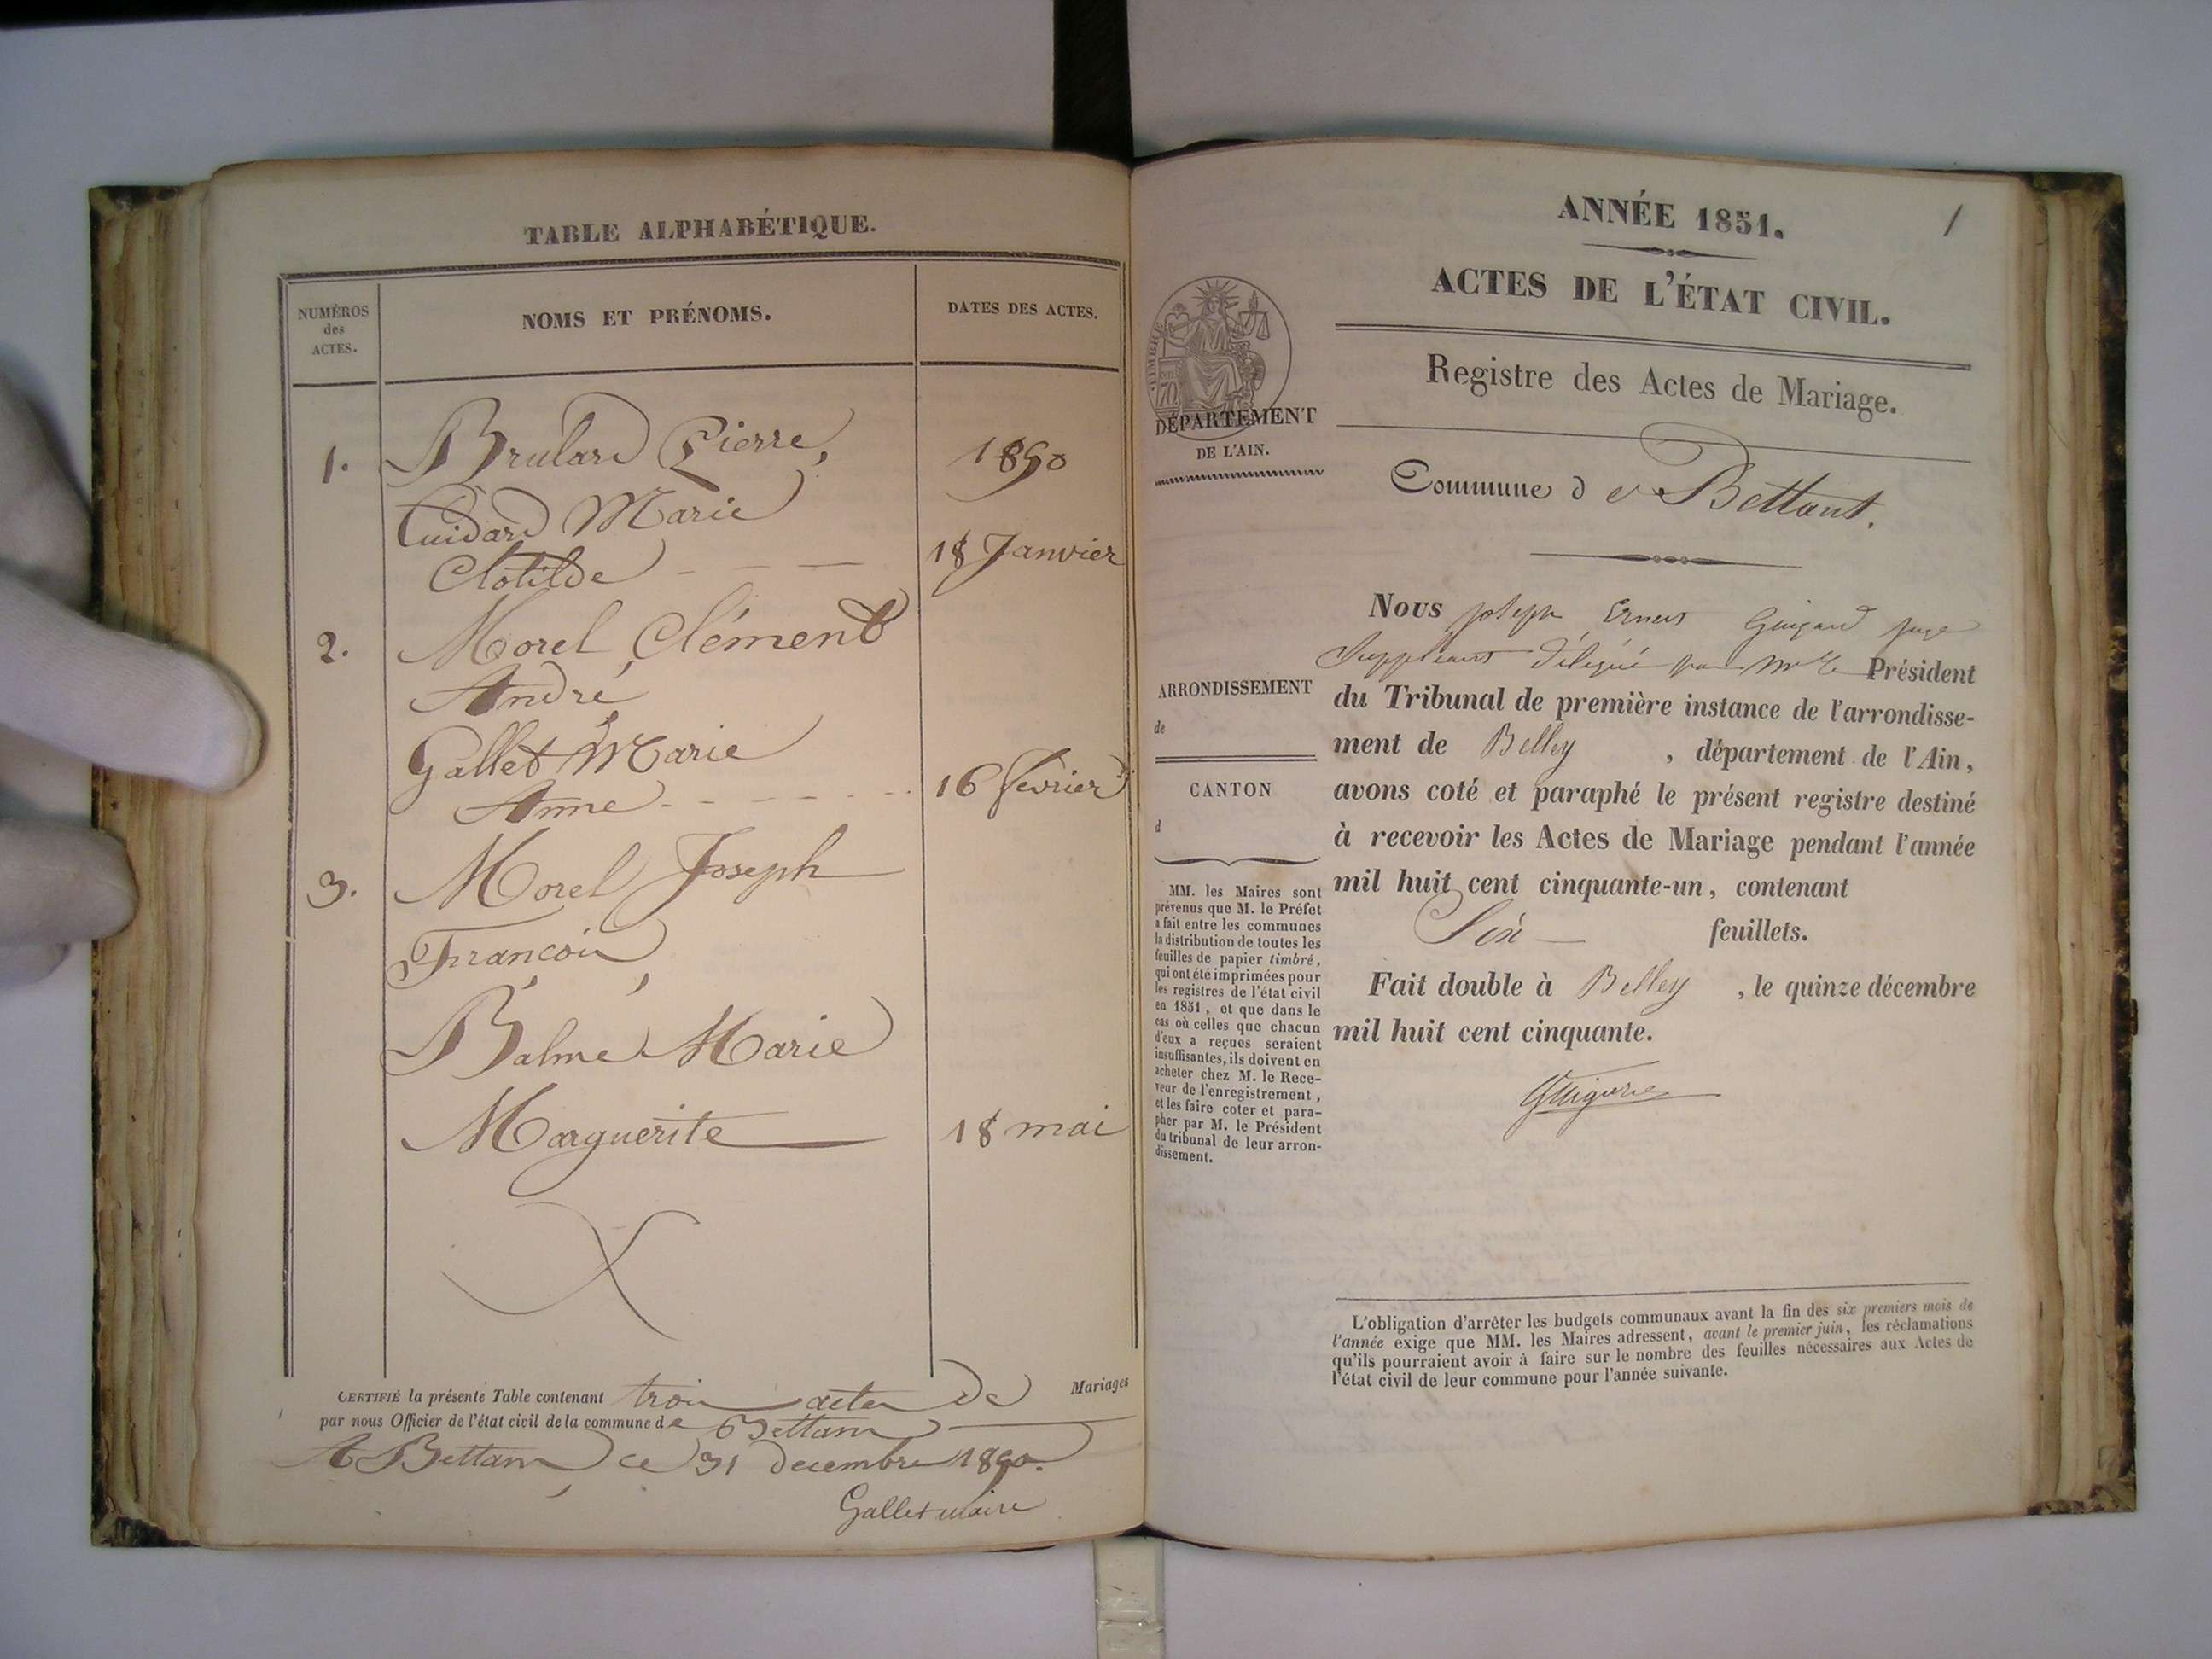 TABLE ALPHABÉTIQUE.
NUMÉROS
des
ACTES.
NOMS ET PRÉNOMS.
DATES DES ACTES.
1.
Brulard Pierre,
1850
Cuidard Marie
Clotilde
18 Janvier
2.
Morel Clément
André
Gallet Marie
Anne
16 février
3.
Morel Joseph
François
Balme Marie
Marguerite
18 mai
CERTIFIÉ la présente Table contenant trois actes de Mariages
par nous Officier de l'état civil de la commune de Bettant
A Bettant ce 31 decembre 1850.
Gallet maire
1
ANNÉE 1851.
ACTES DE L'ÉTAT CIVIL.
Registre des Actes de Mariage.
Commune de Bettant.
TIMBRE
70
DÉPARTEMENT
DE L'AIN.
ARRONDISSEMENT
de
CANTON
d
MM. les Maires sont
prévenus que M. le Préfet
a fait entre les communes
la distribution de toutes les
feuilles de papier timbré,
qui ont été imprimées pour
les registres de l'état civil
en 1851, et que dans le
cas où celles que chacun
d'eux a reçues seraient
insuffisantes, ils doivent en
acheter chez M. le Rece-
veur de l'enregistrement,
et les faire coter et para-
pher par M. le Président
du tribunal de leur arron-
dissement.
Nous Joseph Ernest juge
Suppléant délégué par Mr le Président
du Tribunal de première instance de l'arrondisse-
ment de Belley, département de l'Ain,
avons coté et paraphé le présent registre destiné
à recevoir les Actes de Mariage pendant l'année
mil huit cent cinquante-un, contenant
Six feuillets.
Fait double à Belley, le quinze décembre
mil huit cent cinquante.
L'obligation d'arrêter les budgets communaux avant la fin des six premiers mois de
l'année exige que MM. les Maires adressent, avant le premier juin, les réclamations
qu'ils pourraient avoir à faire sur le nombre des feuilles nécessaires aux Actes de
l'état civil de leur commune pour l'année suivante.